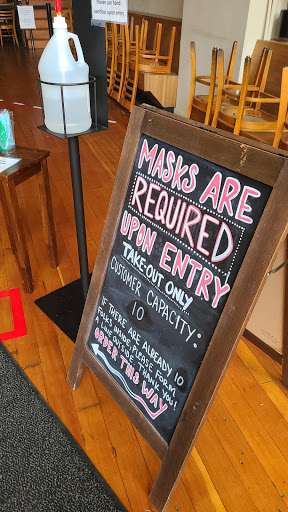 Please wear mask and hand
sanitize upon entry
MASKS ARE
REQUIRED
UPON ENTRY
TAKE-OUT ONLY
CUSTOMER CAPACITY:
10
IF THERE ARE ALREADY 10
FOLKS INSIDE, PLEASE FORM
A LINE OUTSIDE. THANK YOU!
ORDER THIS WAY